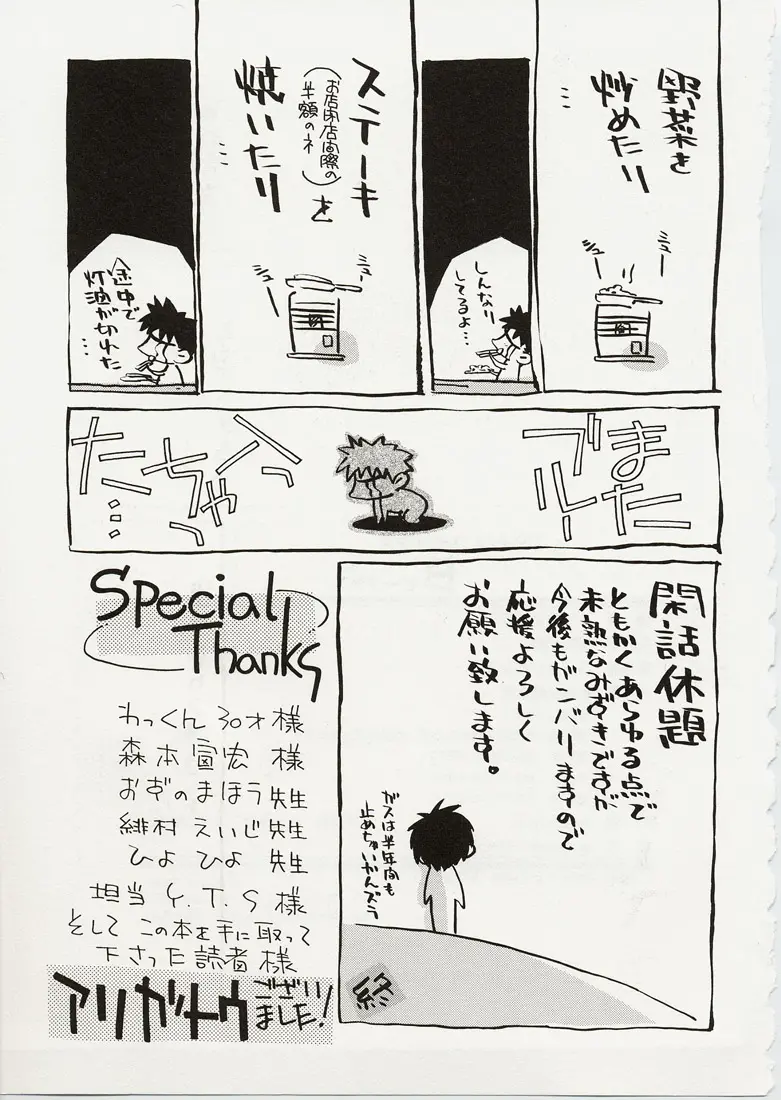 野菜を
炒めたり
…
ジュー
ジュー
しんなり
してるよ…
ステーキ
(お店閉店間際の
半額のネ)
を
焼いたり
…
ジュー
ジュー
途中で
灯油が切れた
…
また
ブルー
入っ
ちゃっ
た…
閑話休題
ともかくあらゆる点で
未熟なみずきですが
今後もガンバリますので
応援よろしく
お願い致します。
ガスは半年間も
止めちゃいかんズラ
終
Special
Thanks
わっくん30才様
森本宣宏 様
おぎのまほう先生
緋村えいじ先生
ひよひよ 先生
担当 Y.T.S 様
そして この本を手に取って
下さった読者様
アリガトウ
ござい
ました!